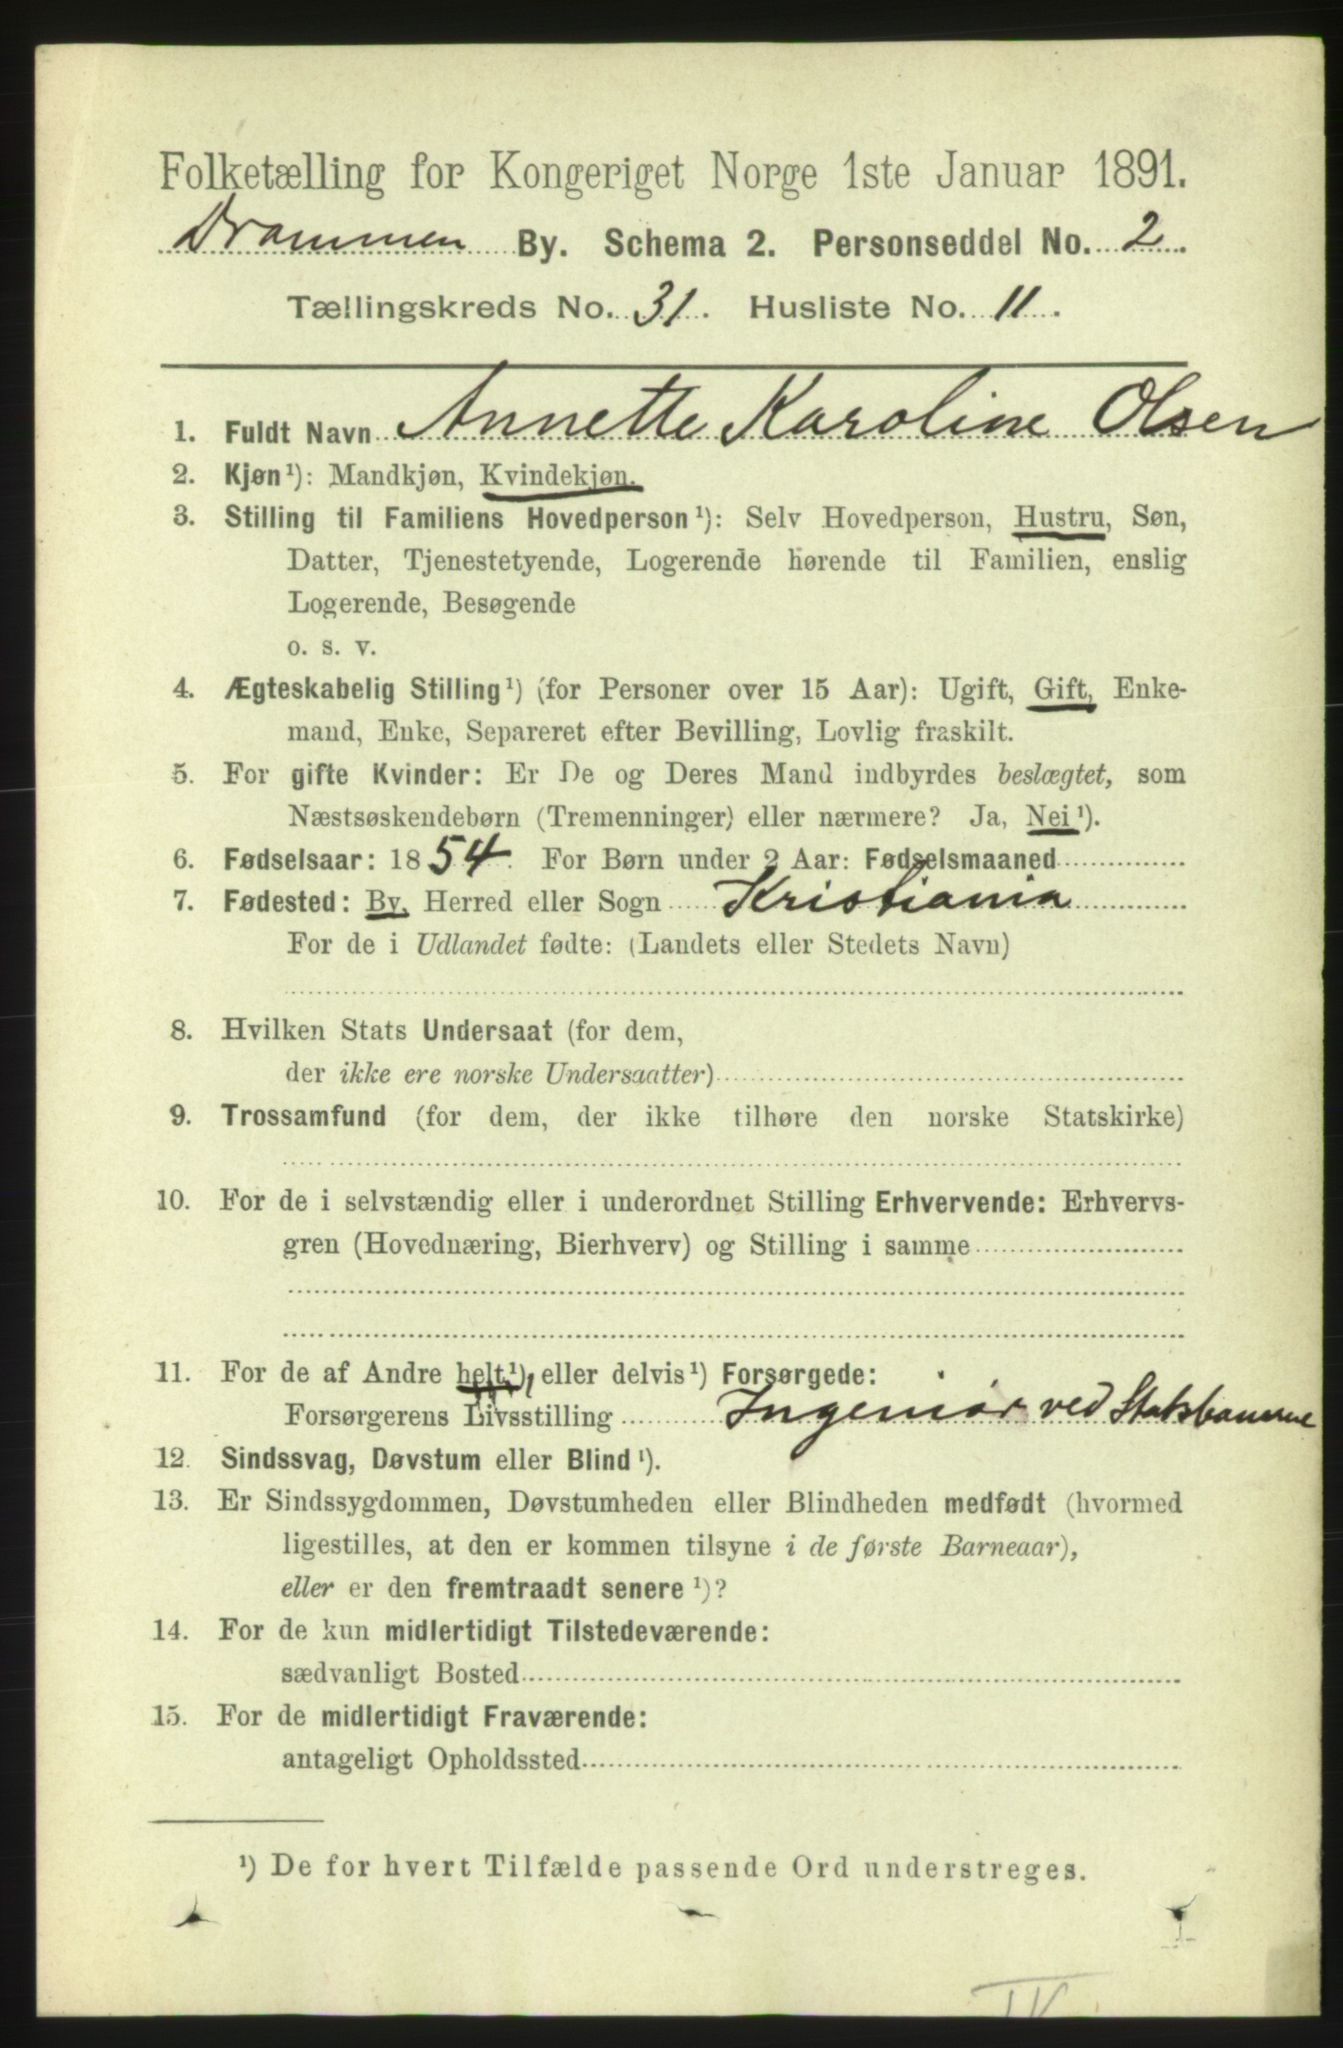 Folketælling for Kongeriget Norge 1ste Januar 1891.
Drammen By. Schema 2. Personseddel No. 2.
Tællingskreds No. 31. Husliste No. 11.
1. Fuldt Navn Annette Karoline Olsen
2. Kjøn¹): Mandkjøn, Kvindekjøn.
3. Stilling til Familiens Hovedperson¹): Selv Hovedperson, Hustru, Søn,
Datter, Tjenestetyende, Logerende hørende til Familien, enslig
Logerende, Besøgende
o. s. v.
4. Ægteskabelig Stilling¹) (for Personer over 15 Aar): Ugift, Gift, Enke-
mand, Enke, Separeret efter Bevilling, Lovlig fraskilt.
5. For gifte Kvinder: Er De og Deres Mand indbyrdes beslægtet, som
Næstsøskendebørn (Tremenninger) eller nærmere? Ja, Nei¹).
6. Fødselsaar: 1854. For Børn under 2 Aar: Fødselsmaaned
7. Fødested: By, Herred eller Sogn Kristiania
For de i Udlandet fødte: (Landets eller Stedets Navn)
8. Hvilken Stats Undersaat (for dem,
der ikke ere norske Undersaatter)
9. Trossamfund (for dem, der ikke tilhøre den norske Statskirke)
10. For de i selvstændig eller i underordnet Stilling Erhvervende: Erhvervs-
gren (Hovednæring, Bierhverv) og Stilling i samme
11. For de af Andre helt¹), eller delvis¹) Forsørgede:
Forsørgerens Livsstilling Ingeniør ved Statsbanerne
12. Sindssvag, Døvstum eller Blind¹).
13. Er Sindssygdommen, Døvstumheden eller Blindheden medfødt (hvormed
ligestilles, at den er kommen tilsyne i de første Barneaar),
eller er den fremtraadt senere¹)?
14. For de kun midlertidigt Tilstedeværende:
sædvanligt Bosted
15. For de midlertidigt Fraværende:
antageligt Opholdssted
¹) De for hvert Tilfælde passende Ord understreges.